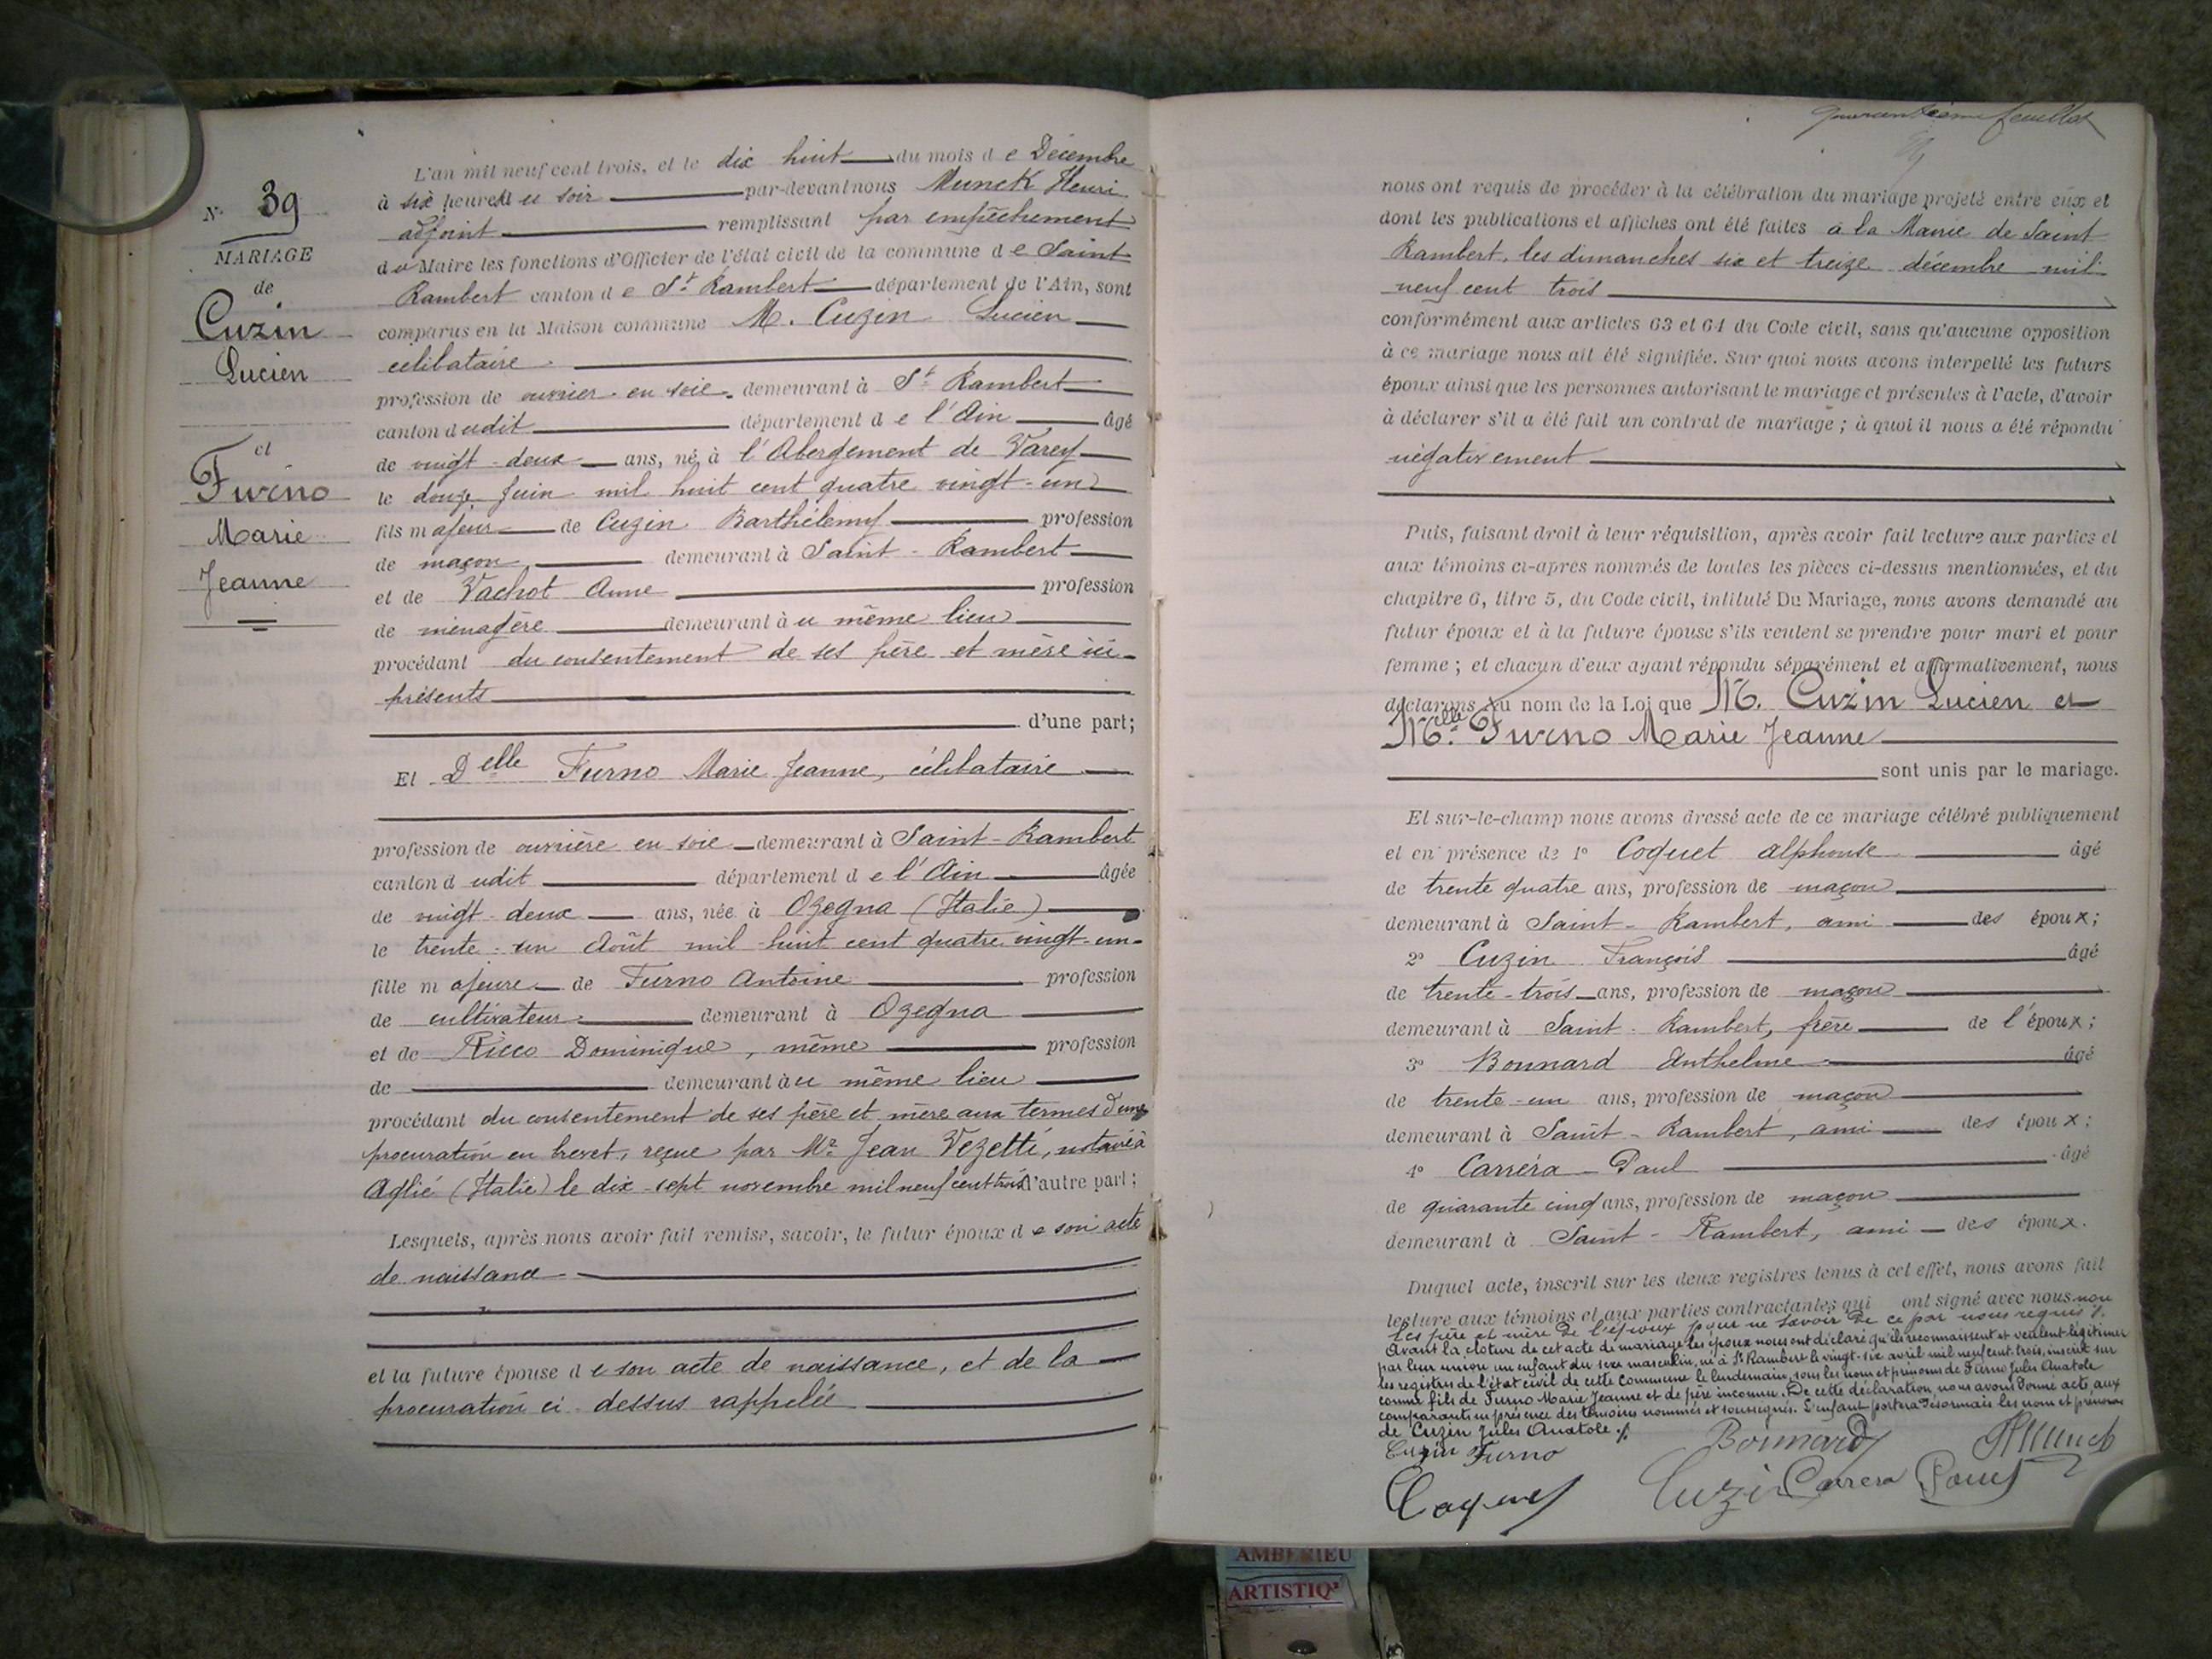 N° 39
MARIAGE
de
Cuzin
Lucien
et
Furno
Marie
Jeanne
L'an mil neuf cent trois, et le dix huit du mois de Décembre
à six heures du soir par-devant nous Munck Henri
adjoint remplissant par empêchement
du Maire les fonctions d'Officier de l'état civil de la commune de Saint
Rambert canton de St Rambert département de l'Ain, sont
comparus en la Maison commune M. Cuzin Lucien
célibataire
profession de ouvrier en soie demeurant à St Rambert
canton dudit département de l'Ain âgé
de vingt-deux ans, né à l'Abergement de Varey
le douze Juin mil huit cent quatre vingt-un
fils majeur de Cuzin Barthélemy profession
de maçon demeurant à Saint-Rambert
et de Vachot Anne profession
de ménagère demeurant au même lieu
procédant du consentement de ses père et mère ici
présents
d'une part;
Et Delle Furno Marie Jeanne, célibataire
profession de ouvrière en soie demeurant à Saint-Rambert
canton dudit département de l'Ain âgée
de vingt-deux ans, née à Ozegna (Italie)
le trente-un Août mil huit cent quatre vingt-un
fille majeure de Furno Antoine profession
de cultivateur demeurant à Ozegna
et de Ricco Dominique, même profession
de demeurant au même lieu
procédant du consentement de ses père et mère aux termes d'une
procuration en brevet, reçue par Me Jean Vezetti, notaire à
Aglié (Italie) le dix-sept novembre mil neuf cent trois d'autre part;
Lesquels, après nous avoir fait remise, savoir, le futur époux de son acte
de naissance
et la future épouse de son acte de naissance, et de la
procuration ci-dessus rappelée
quarantième feuillet
nous ont requis de procéder à la célébration du mariage projeté entre eux et
dont les publications et affiches ont été faites à la Mairie de Saint
Rambert, les dimanches six et treize décembre mil
neuf cent trois
conformément aux articles 63 et 64 du Code civil, sans qu'aucune opposition
à ce mariage nous ait été signifiée. Sur quoi nous avons interpellé les futurs
époux ainsi que les personnes autorisant le mariage et présentes à l'acte, d'avoir
à déclarer s'il a été fait un contrat de mariage; à quoi il nous a été répondu
négativement
Puis, faisant droit à leur réquisition, après avoir fait lecture aux parties et
aux témoins ci-après nommés de toutes les pièces ci-dessus mentionnées, et du
chapitre 6, titre 5, du Code civil, intitulé Du Mariage, nous avons demandé au
futur époux et à la future épouse s'ils veulent se prendre pour mari et pour
femme; et chacun d'eux ayant répondu séparément et affirmativement, nous
déclarons au nom de la Loi que M. Cuzin Lucien et
Melle Furno Marie Jeanne
sont unis par le mariage.
Et sur-le-champ nous avons dressé acte de ce mariage célébré publiquement
et en présence de 1° Coquet Alphonse âgé
de trente quatre ans, profession de maçon
demeurant à Saint-Rambert, ami des époux;
2° Cuzin François âgé
de trente-trois ans, profession de maçon
demeurant à Saint-Rambert, frère de l'époux;
3° Bonnard Anthelme âgé
de trente-un ans, profession de maçon
demeurant à Saint-Rambert, ami des époux;
4° Carréra Paul âgé
de quarante cinq ans, profession de maçon
demeurant à Saint-Rambert, ami des époux.
Duquel acte, inscrit sur les deux registres tenus à cet effet, nous avons fait
lecture aux témoins et aux parties contractantes qui ont signé avec nous non
les père et mère de l'époux pour ne savoir de ce par nous requis ./.
Avant la cloture de cet acte de mariage les époux nous ont déclaré qu'ils reconnaissent et veulent légitimer
par leur union un enfant du sexe masculin, né à St Rambert le vingt-six avril mil neuf cent trois, inscrit sur
les registres de l'état civil de cette commune le lendemain, sous les nom et prénoms de Furno Jules Anatole
comme fils de Furno Marie Jeanne et de père inconnu. De cette déclaration, nous avons donné acte aux
comparants en présence des témoins nommés et soussignés. L'enfant portera désormais les nom et prénoms
de Cuzin Jules Anatole ./.
Cuzin Furno Bonnard HMunck
Coquet Cuzin Carrera Paul
AMBERIEU
ARTISTIQ'